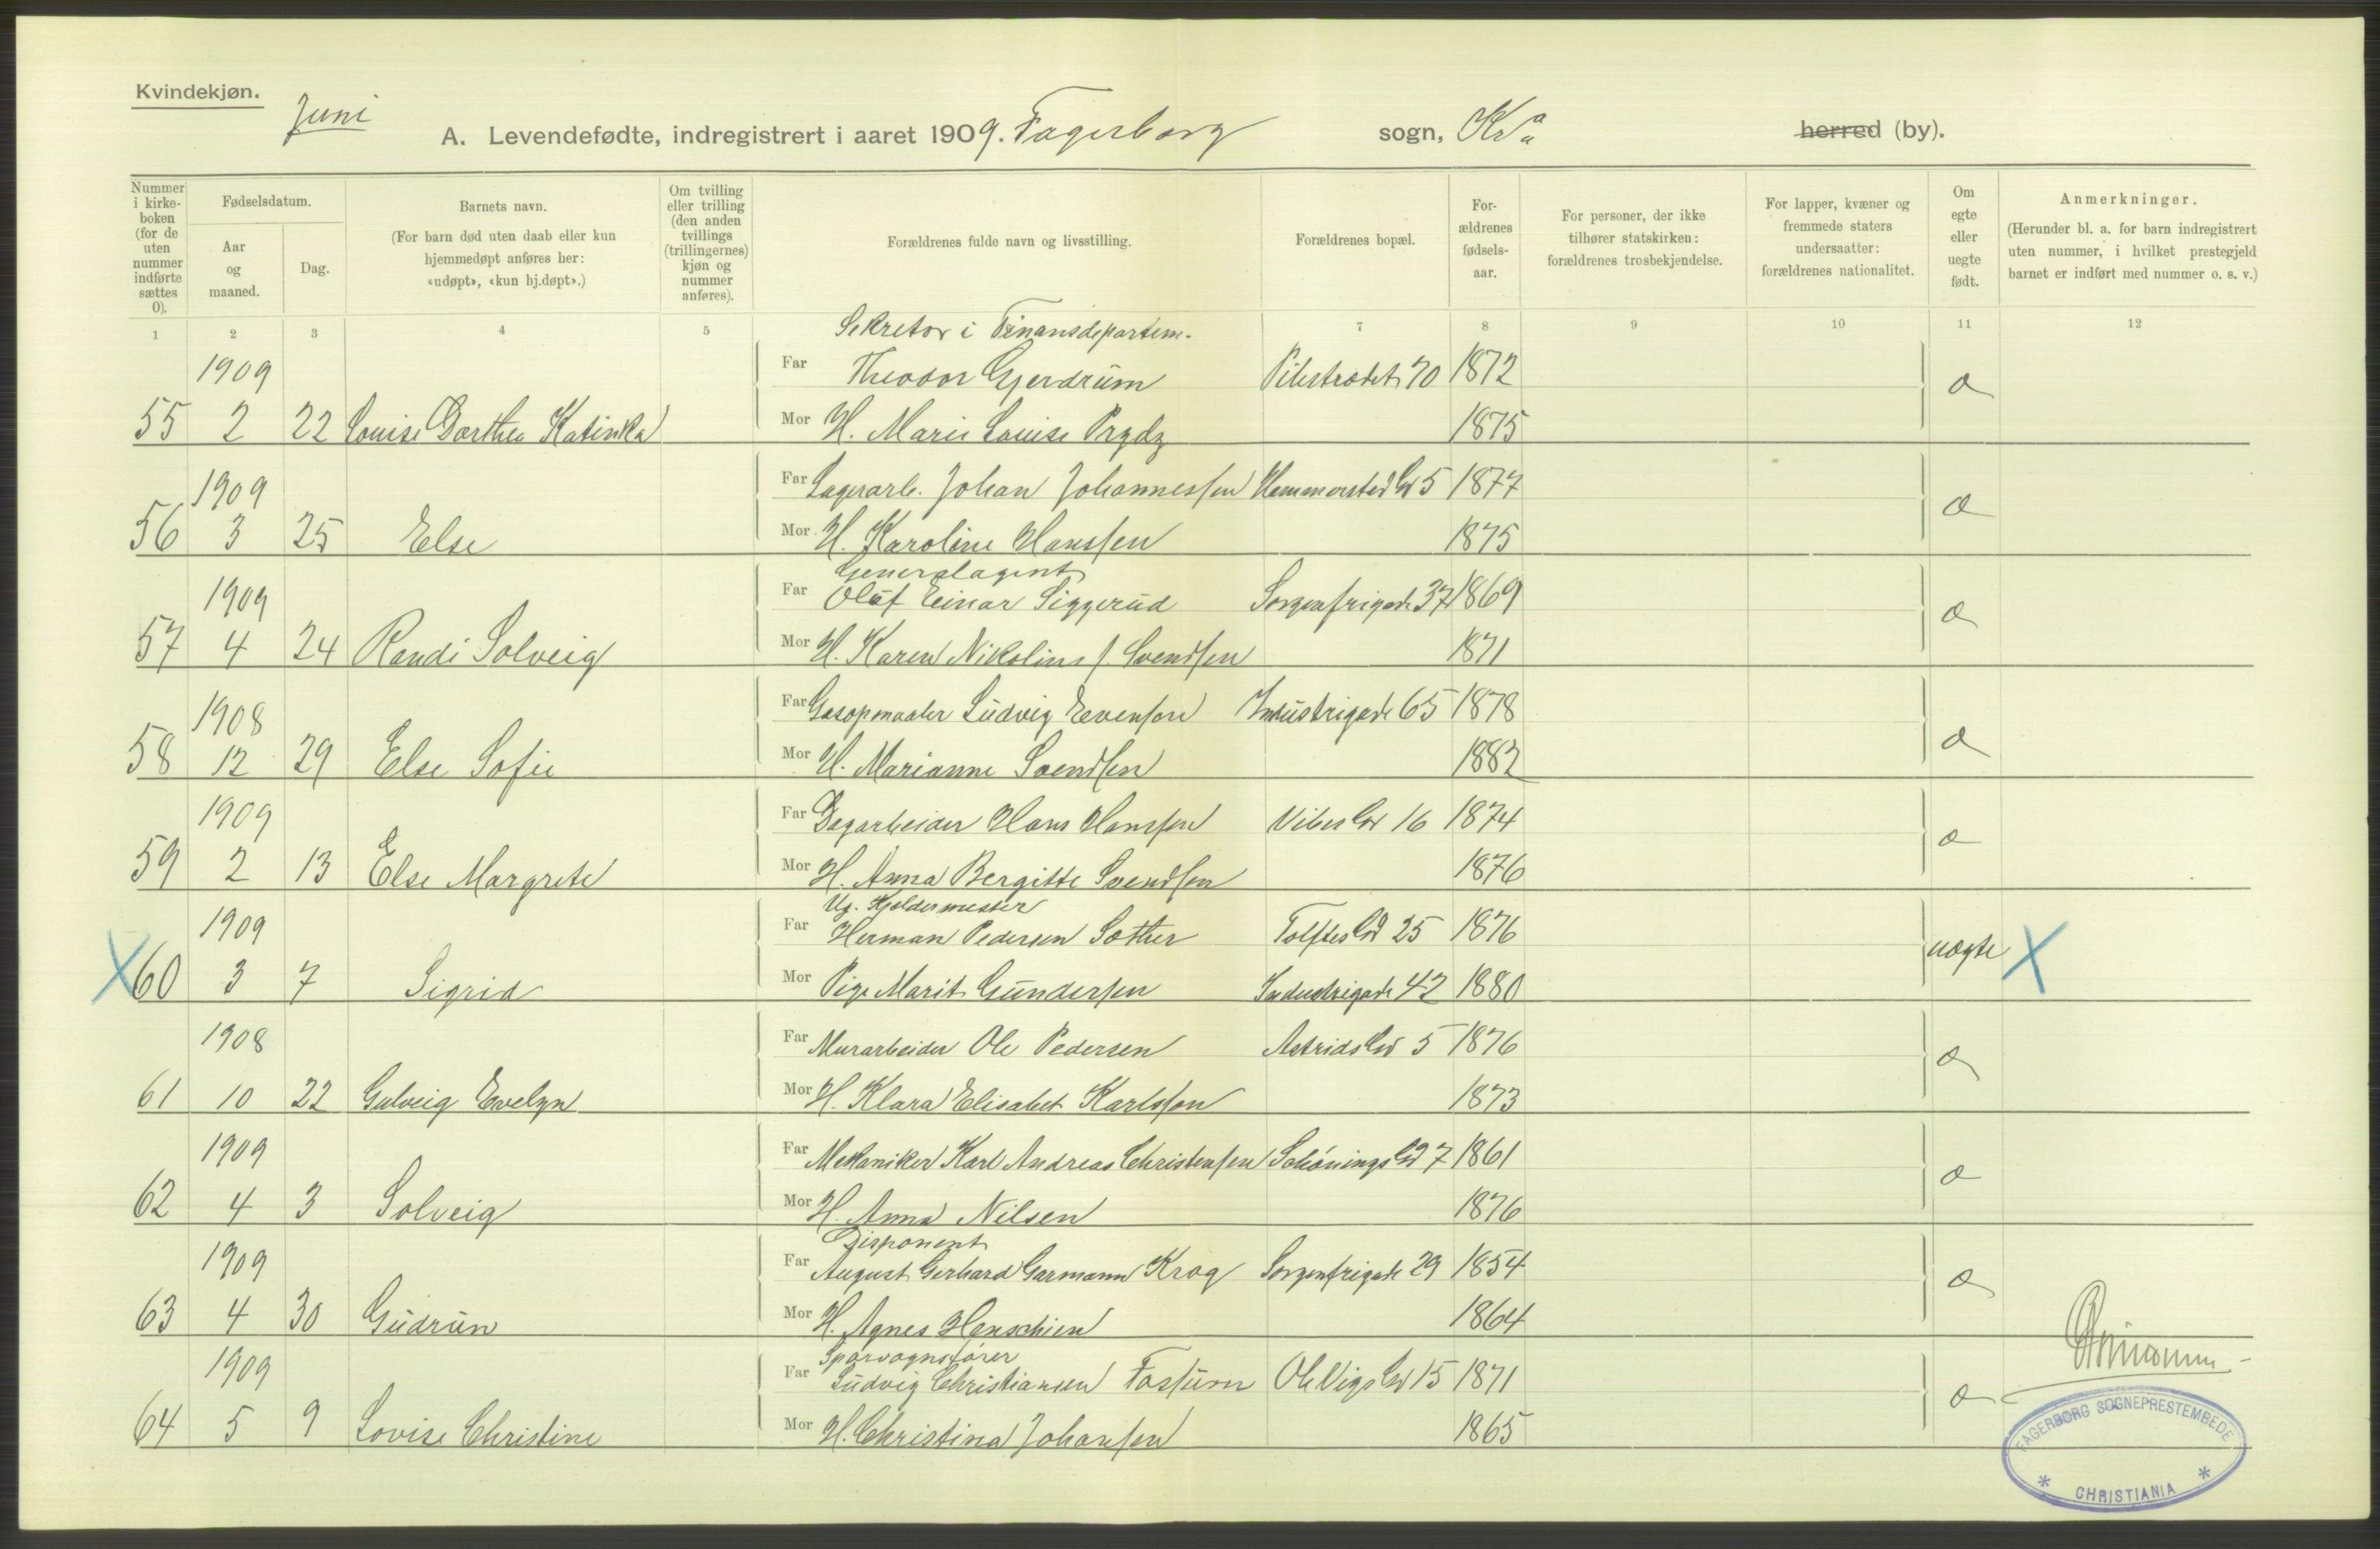 Kvindekjøn.
Juni
A. Levendefødte, indregistrert i aaret 1909. Fagerborg sogn, Kra herred (by).
Nummer i kirke-boken (for de uten nummer indførte sættes 0).
Fødselsdatum.
Aar og maaned.
Dag.
Barnets navn.
(For barn død uten daab eller kun hjemmedøpt anføres her: «udøpt», «kun hj.døpt».)
Om tvilling eller trilling (den anden tvillings (trillingernes) kjøn og nummer anføres).
Forældrenes fulde navn og livsstilling.
Forældrenes bopæl.
For-ældrenes fødsels-aar.
For personer, der ikke tilhører statskirken: forældrenes trosbekjendelse.
For lapper, kvæner og fremmede staters undersaatter: forældrenes nationalitet.
Om egte eller uegte født.
Anmerkninger.
(Herunder bl. a. for barn indregistrert uten nummer, i hvilket prestegjeld barnet er indført med nummer o. s. v.)
1 2 3 4 5 7 8 9 10 11 12
Sekretær i Finansdepartem.
1909 Far Theodor Gjerdrum Pilestrædet 70 1872
55 2 22 Louise Dorthea Katinka Mor H. Marie Louise Prydz 1875 æ
1909 Far Lagerarb. Johan Johannessen Hammerstad Gd 5 1877
56 3 25 Else Mor H. Karoline Hanssen 1875 æ
Generalagent
1909 Far Oluf Einar Siggerud Sorgenfrigade 37 1869
57 4 24 Randi Solveig Mor H. Karen Nikoline f. Svendsen 1871 æ
1908 Far Gasopmaaler Ludvig Evensen Industrigade 65 1878
58 12 29 Else Sofie Mor H. Marianne Svendsen 1882 æ
1909 Far Dagarbeider Hans Hanssen Vibes Gd 16 1874
59 2 13 Else Margrete Mor H. Anna Bergitte Svendsen 1876 æ
Ug. Kjeldermester
1909 Far Herman Pedersen Sæther Toftes Gd 25 1876
X 60 3 7 Sigrid Mor Pige Marit Gundersen Industrigade 42 1880 uægte X
1908 Far Murarbeider Ole Pedersen Astrids Gd 5 1876
61 10 22 Gulveig Evelyn Mor H. Klara Elisabet Karlsson 1873 æ
1909 Far Mekaniker Karl Andreas Christensen Schønings Gd 7 1861
62 4 3 Solveig Mor H. Anna Nilsen 1876 æ
Disponent
1909 Far August Gerhard Garmann Krog Sorgenfrigade 29 1854
63 4 30 Gudrun Mor H. Agnes Henschien 1864 æ
Sporvognsfører
1909 Far Ludvig Christiansen Fossum Ole Vigs Gd 15 1871
64 5 9 Lovise Christine Mor H. Christina Johansen 1865 æ
FAGERBORG SOGNEPRESTEMBEDE
* CHRISTIANIA *